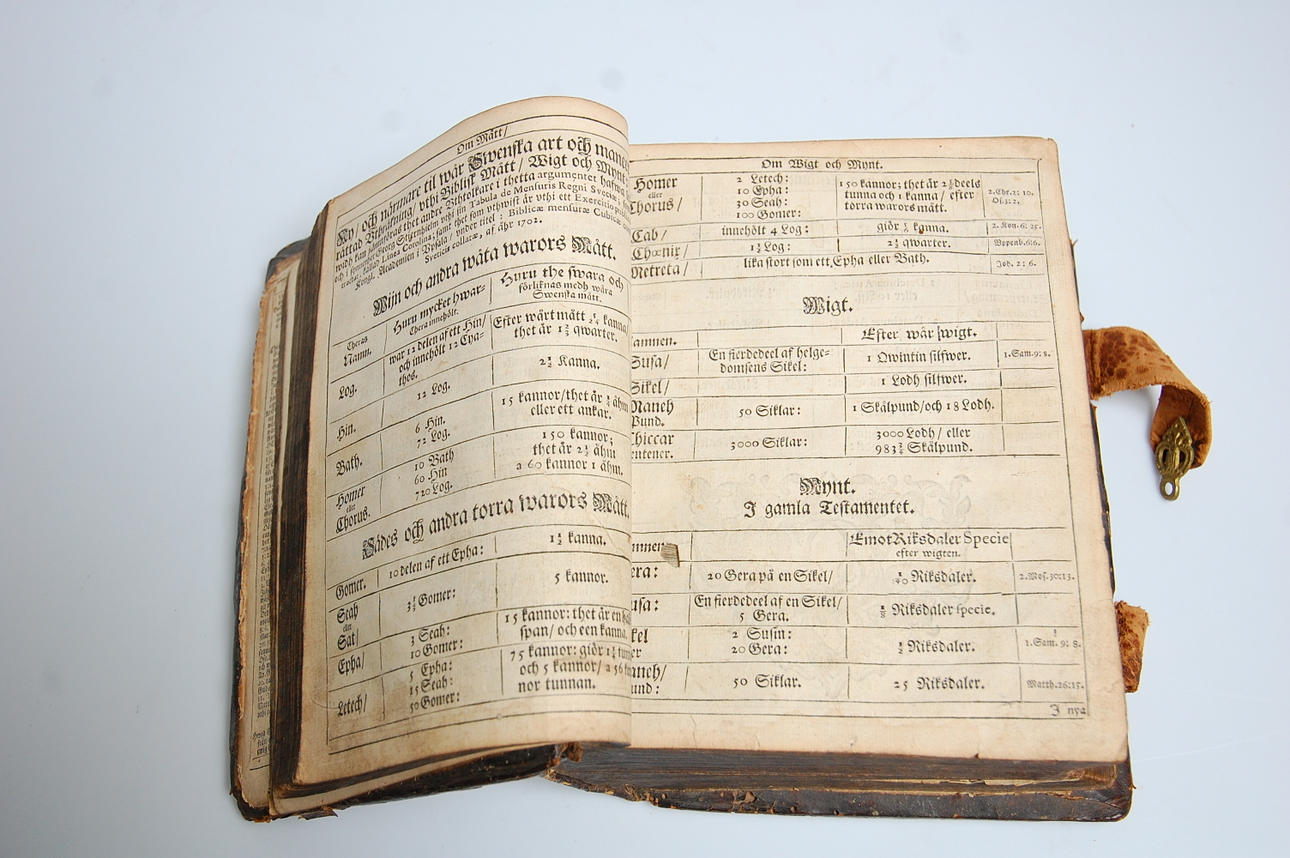 Om Mått/
Ny/ och närmare til wår Swenska art och maner
rättad Uthräkning/ uthi Biblisk Mått/ Wigt och Mynt
widh kan jämföras thet andre Bibeltolkare i thetta argumentet hafwa
och i synnerhet Georg Stiernhielm uthi sin Tabula de Mensuris Regni Sveciæ
kallad Linea Carolina; samt thet som uthwist är uthi ett Exercitio
Kongl. Academien i Upsala/ under titel: Biblicæ mensuræ Cubicæ cum
Svecicis collatæ, af åhr 1702.
Wijn och andra wåta warors Mått.
Theras Namn.
Huru mycket hwar-
thera innehölt.
Huru the swara och
förliknas medh wåra
Swenska mått.
Log.
war 12 delen af ett Hin/
och innehölt 12 Cya-
thos.
Efter wårt mått kanna
thet är qwarter.
Hin.
12 Log.
2½ Kanna.
Bath.
6 Hin.
72 Log.
15 kannor/thet är ¼ åhm
eller ett ankar.
Homer
eller
Chorus.
10 Bath
60 Hin
720 Log.
150 kannor;
thet är 2½ åhm
a 60 kannor 1 åhm.
Sädes och andra torra warors Mått.
Gomer.
10 delen af ett Epha:
1½ kanna.
Seah
eller
Sat/
3⅓ Gomer:
5 kannor.
Epha/
3 Seah:
10 Gomer:
15 kannor: thet är en
span/ och een kanna.
Letech/
5 Epha:
15 Seah:
50 Gomer:
75 kannor: giör 1¼ tunnor
och 5 kannor/ a 56
nor tunnan.
Om Wigt och Mynt.
Homer
eller
Chorus/
2 Letech:
10 Epha:
30 Seah:
100 Gomer:
150 kannor; thet är deels
tunna och 1 kanna/ efter
torra warors mått.
2.Chr.2: 10.
Os.3:2.
Cab/
innehölt 4 Log:
giör kanna.
2. Kon.6: 25.
Chœnix/
1½ Log:
2¼ qwarter.
Uppenb.6:6.
Metreta/
lika stort som ett Epha eller Bath.
Joh. 2: 6.
Wigt.
amnen.
Efter wår wigt.
Susa/
En fierdedeel af helge-
domsens Sikel:
1 Qwintin silfwer.
1.Sam.9: 8.
Sikel/
1 Lodh silfwer.
Maneh
Pund.
50 Siklar:
1 Skålpund/och 18 Lodh.
Chiccar
entener.
3000 Siklar:
3000 Lodh/ eller
983¾ Skålpund.
Mynt.
I gamla Testamentet.
mnen
Emot Riksdaler Specie
efter wigten.
era:
20 Gera på en Sikel/
1/40 Riksdaler.
2.Mos.30:13.
usa:
En fierdedeel af en Sikel/
5 Gera.
⅛ Riksdaler specie.
kel
er
2 Susin:
20 Gera:
½ Riksdaler.
1.Sam. 9: 8.
aneh/
und:
50 Siklar.
25 Riksdaler.
Matth.26:15.
I nya